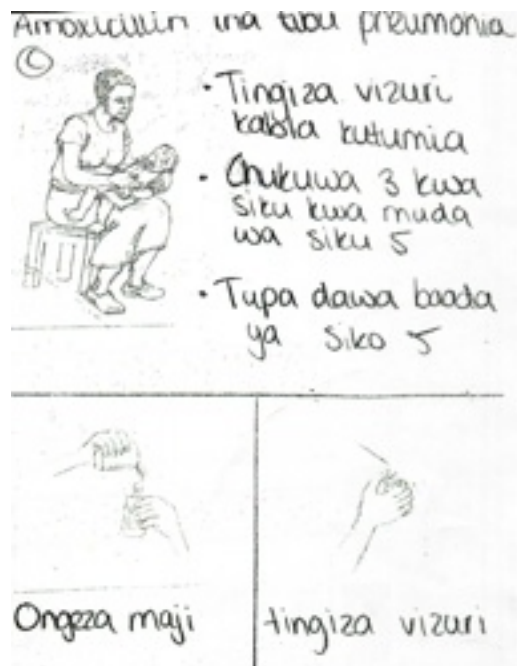 Amoxicillin ina tibu pneumonia
C
• Tingiza vizuri
kabla kutumia
• Chukuwa 3 kwa
siku kwa muda
wa siku 5
• Tupa dawa baada
ya siko 5
Ongeza maji
tingiza vizuri